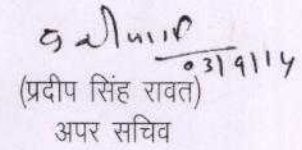 03/9/14
(प्रदीप सिंह रावत)
अपर सचिव